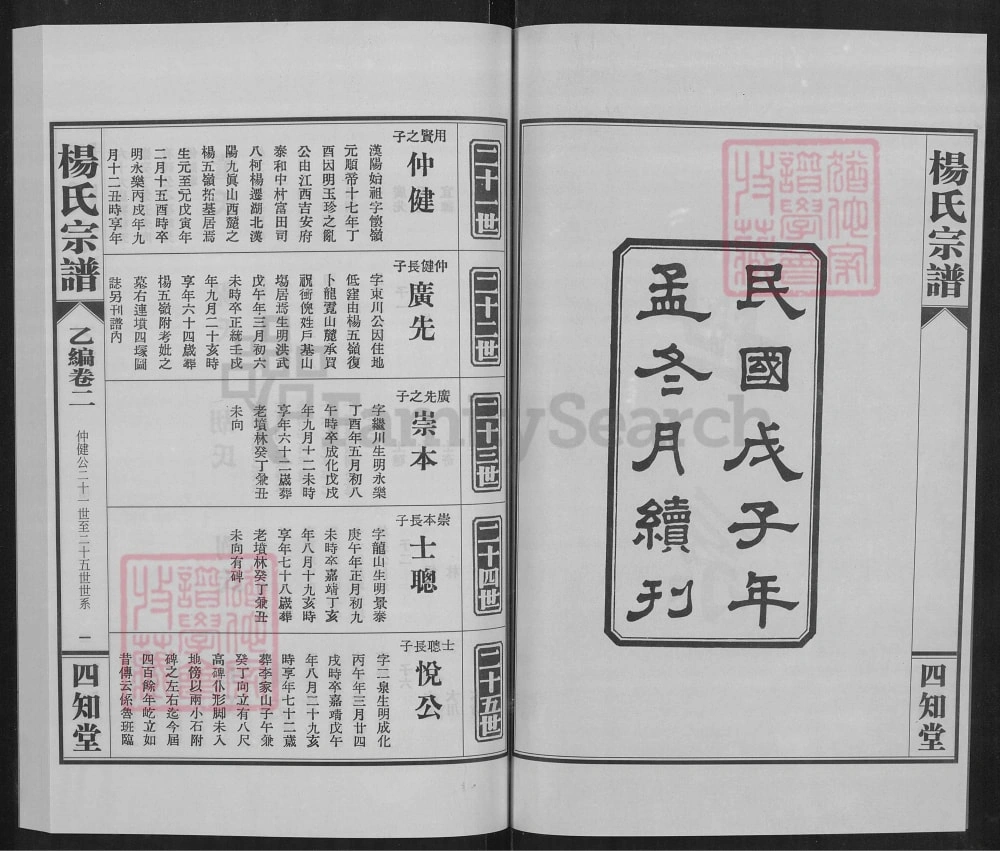 楊氏宗譜
四知堂
民國戊子年
孟冬月續刊
二十一世
用賢之子
仲健
漢陽始祖字懷嶺
元順帝十七年丁
酉因明玉珍之亂
公由江西吉安府
泰和中村富田司
八柯楊遷湖北漢
陽九眞山西麓之
楊五嶺拓基居焉
生元至元戊寅年
二月十五酉時卒
明永樂丙戌年九
月十二丑時享年
二十二世
仲健長子
廣先
字東川公因住地
低窪由楊五嶺復
卜龍霓山麓承買
祝衝倪姓戶基山
塲居焉生明洪武
戊午年三月初六
未時卒正統壬戌
年九月二十亥時
享年六十四歲葬
楊五嶺附考妣之
墓右連墳四塚圖
誌另刊譜內
二十三世
廣先之子
崇本
字繼川生明永樂
丁酉年五月初八
午時卒成化戊戌
年九月十二未時
享年六十二歲葬
老墳林癸丁兼丑
未向
二十四世
崇本長子
士聰
字龍山生明景泰
庚午年正月初九
未時卒嘉靖丁亥
年八月十九亥時
享年七十八歲葬
老墳林癸丁兼丑
未向有碑
二十五世
士聰長子
悅公
字二泉生明成化
丙午年三月廿四
戌時卒嘉靖戊午
年八月二十九亥
時享年七十二歲
葬李家山子午兼
癸丁向立有八尺
高碑仆形脚未入
地傍以兩小石附
碑之左右迄今屆
四百餘年屹立如
昔傳云係魯班臨
楊氏宗譜
乙編卷二
仲健公二十一世至二十五世世系
一
四知堂
FamilySearch